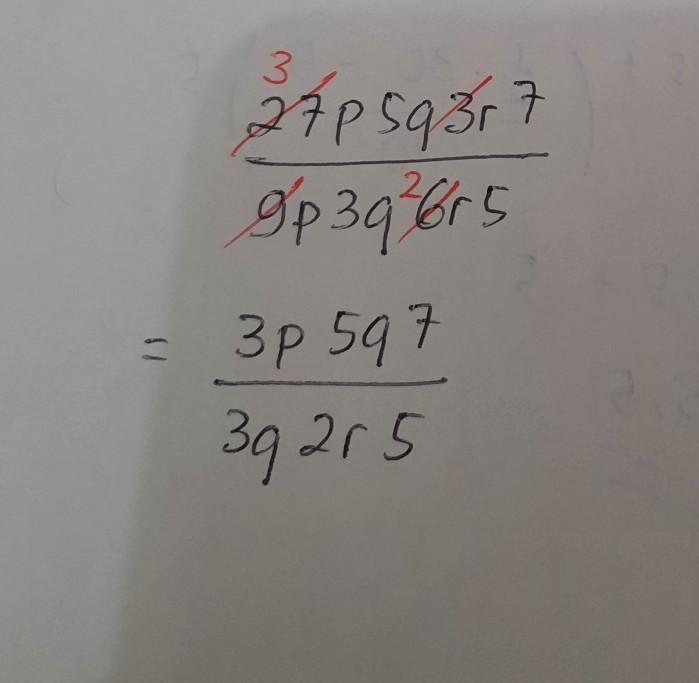 3
27p5q3r7
9p3q²6r5
= 3p5q7
3q2r5